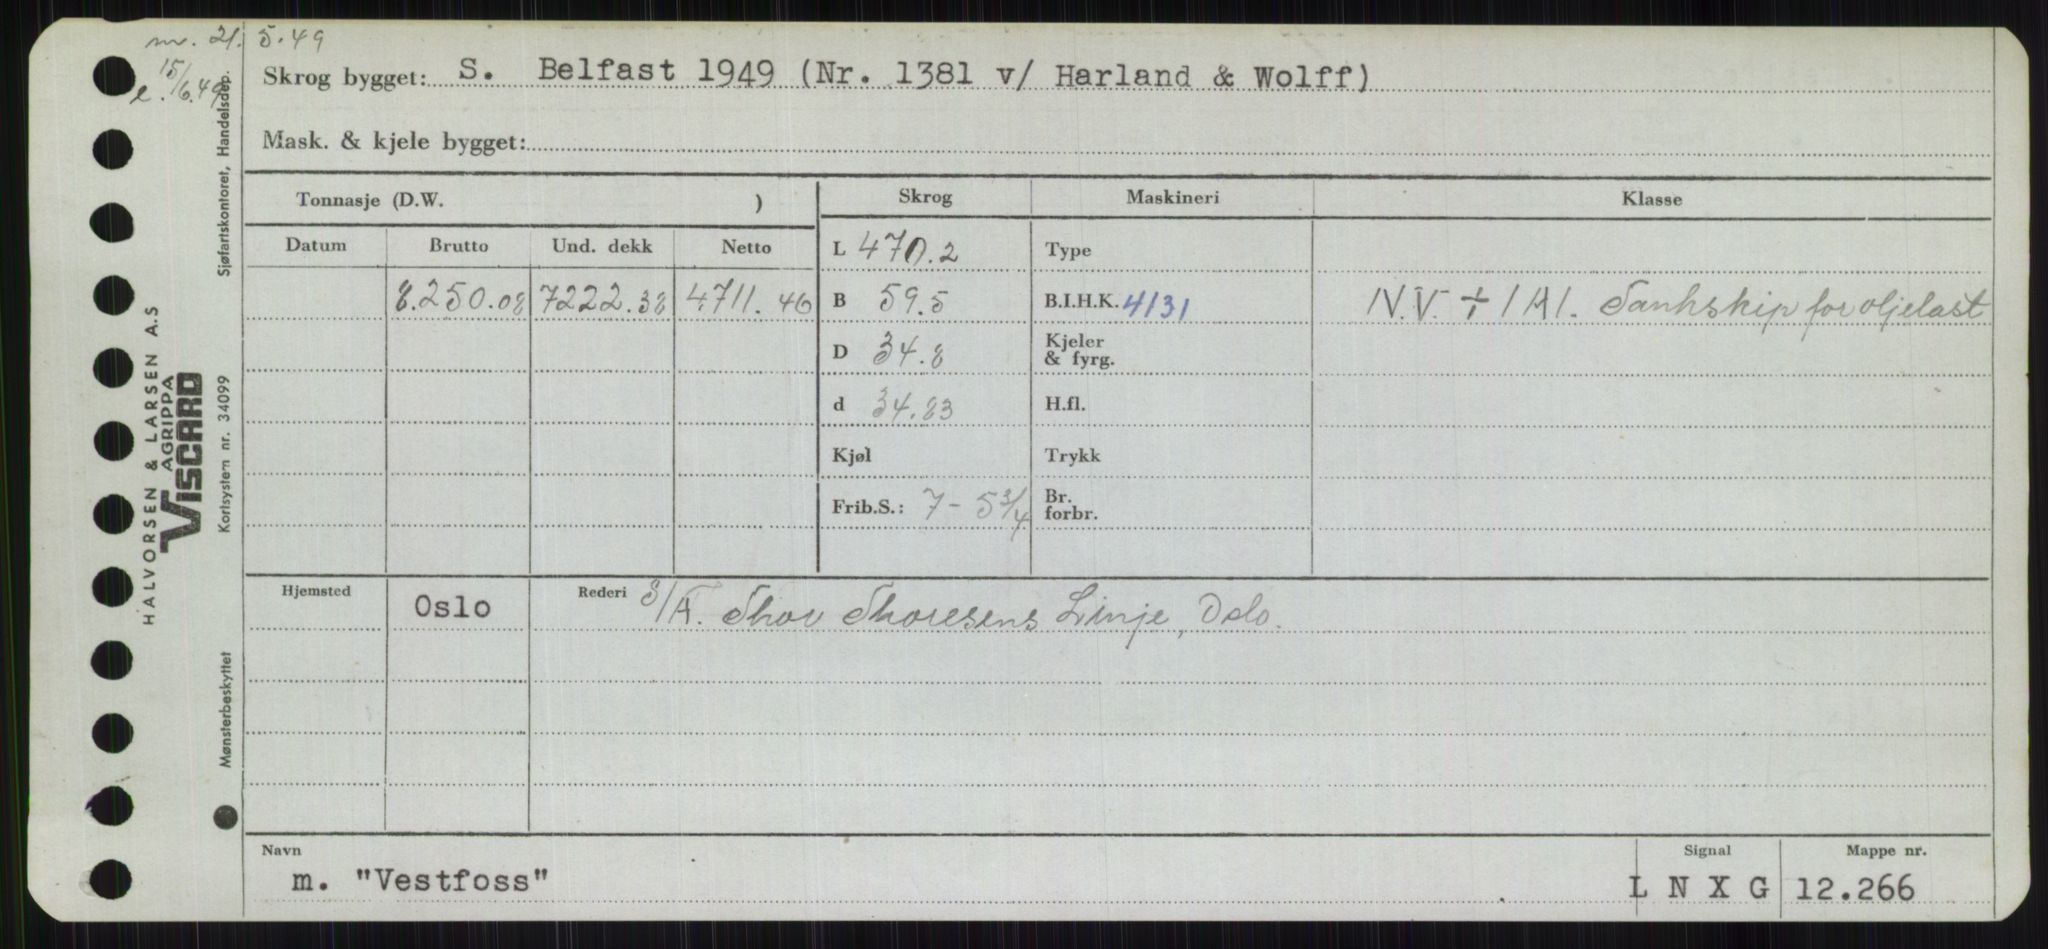 m. 21. 5.49
e. 15/6.49
Skrog bygget: S. Belfast 1949 (Nr. 1381 v/ Harland & Wolff)
Mask. & kjele bygget:
Tonnasje (D.W. )
Skrog Maskineri Klasse
Datum Brutto Und. dekk Netto
8.250.08 7222.38 4711.46
L 470.2
B 59.5
D 34.8
d 34.83
Kjøl
Frib.S.: 7 - 5 3/4
Type
B.I.H.K. 4131
Kjeler
& fyrg.
H.fl.
Trykk
Br.
forbr.
N.V. + 1A1. Tankskip for oljelast
Hjemsted Oslo Rederi S/A. Thor Thoresens Linje, Oslo.
Navn
m. "Vestfoss"
Signal
L N X G
Mappe nr.
12.266
HALVORSEN & LARSEN A.S
AGRIPPA
VISCARD
Mønsterbeskyttet Kortsystem nr. 34099 Sjøfartskontoret, Handelsdep.